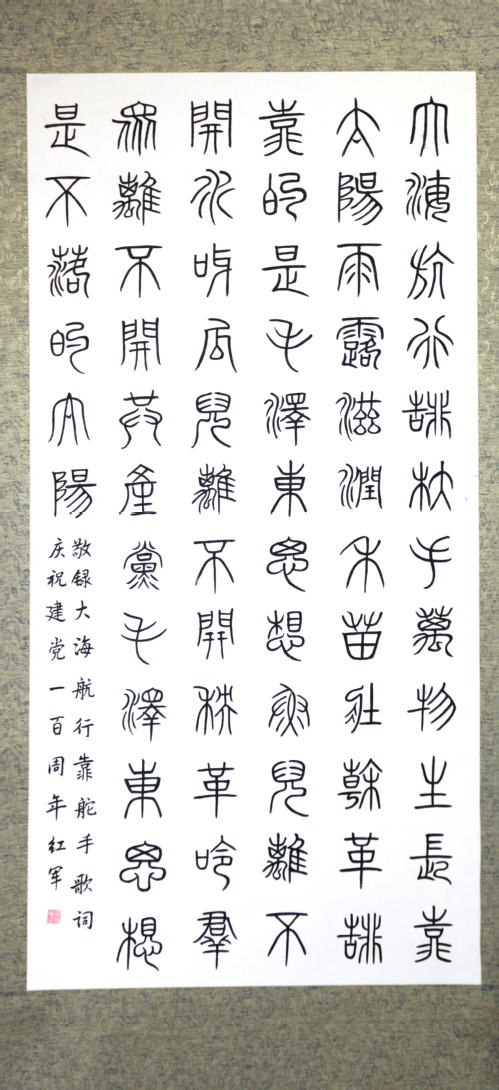 大海航行靠舵手萬物生長靠
太陽雨露滋潤禾苗壯幹革
靠的是毛澤東思想魚兒離不
開水呀瓜兒離不開秧革命羣
眾離不開共產黨毛澤東思想
是不落的太陽
敬録大海航行靠舵手歌词
庆祝建党一百周年红军